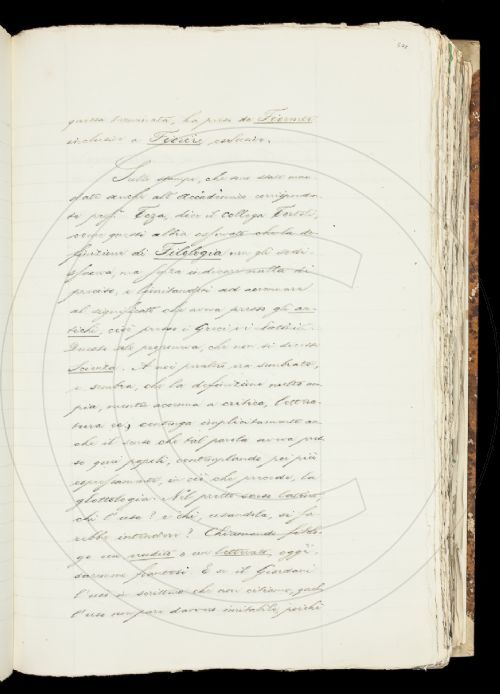 questa tornata, ha preso da Fiermer
inclusive a Fistire, esclusive.
Sulle stampe, che sono state man
date anche all'Accademico corrisponden
te prof. Teza, dice il collega Tortoli,
come questi abbia osservato che la de
finizione di Filologia non gli sodi-
sfaceva, ma
preciso, e limitandosi ad accennare
al significato che aveva presso gli an
tichi, cioè presso i Greci e i Latini.
che non si dicesse
Scienza. A noi pratici era sembrato,
e sembra, che la definizione nostra am
pia, mentre accenna a critica, lettera
tura ec., contenga implicitamente an
che il senso che tal parola aveva pres
so quei popoli, contemplando poi più
espressamente, in ciò che precede, la
glottologia. Nel pretto senso latino
chi l'usa? e chi, usandola, si fa
rebbe intendere? Chiamando filolo
go un erudito o un letterato, oggi,
daremmo francesi. E se il Giordani
l'usò in scrittura che noi citiamo, quel
l'uso non pare davvero imitabile, perchè